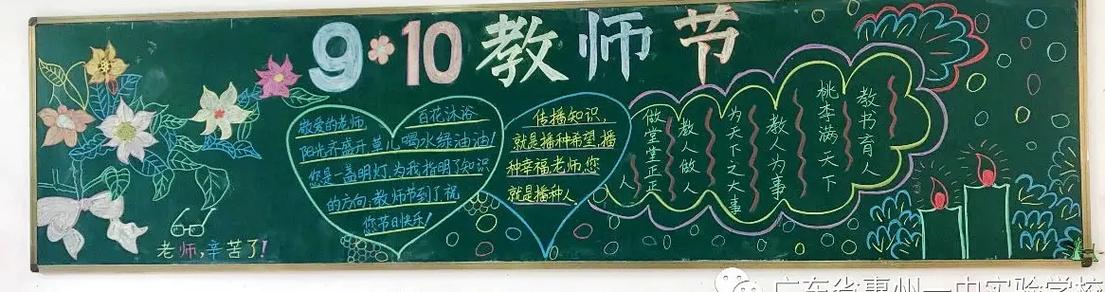 9·10教师节
敬爱的老师 百花沐浴
阳光齐盛开草儿喝水绿油油!
您是一盏明灯,为我指明了知识
的方向,教师节到了祝
您节日快乐!
传播知识,
就是播种希望,播
种幸福老师,您
就是播种人
教书育人
桃李满天下
教人为事
为天下之大事
教人做人
做堂堂正正人
老师,辛苦了!
广东省惠州一中实验学校